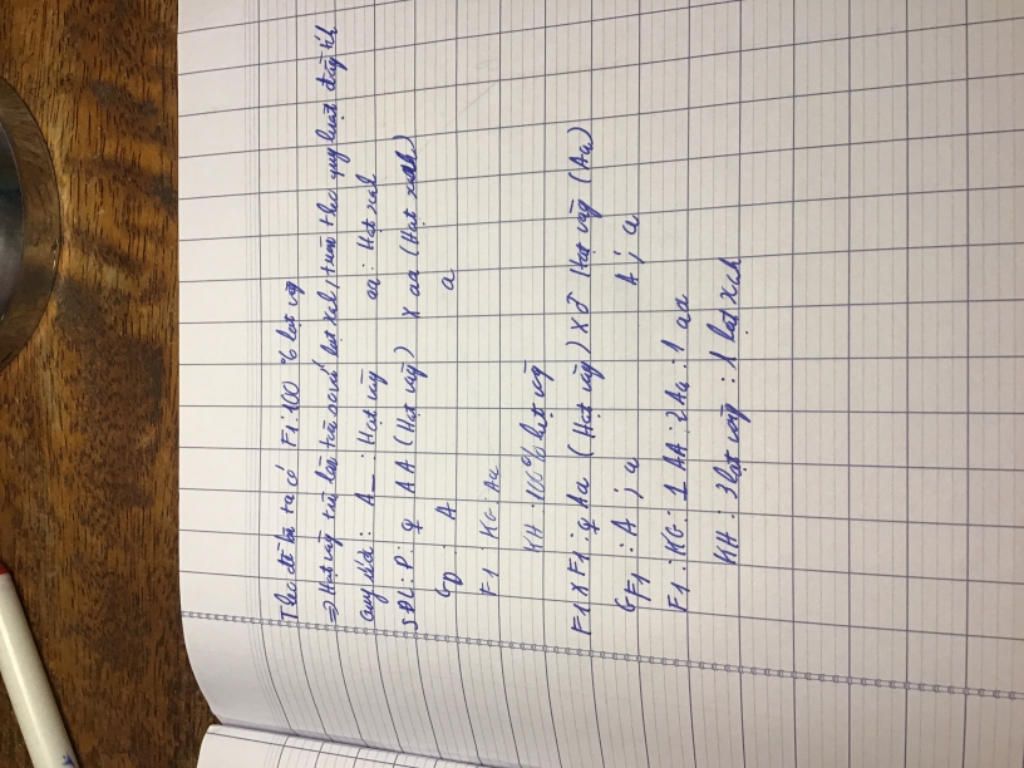 Theo đề bài ta có F1: 100 % hạt vàg
=> Hạt vàg trội hoàn toàn so với hạt xah, tuân theo quy luật đồg tíh
Quy ước: A_: Hạt vàg aa: Hạt xah
SĐL: P: ♀ AA (Hạt vàg) X aa (Hạt xah)
Gp: A a
F1: KG: Aa
KH: 100% hạt vàg
F1 X F1: ♀ Aa (Hạt vàg) X ♂ Hạt vàg (Aa)
GF1: A ; a A ; a
F1: KG: 1 AA : 2 Aa : 1 aa
KH: 3 hạt vàg : 1 hạt xah